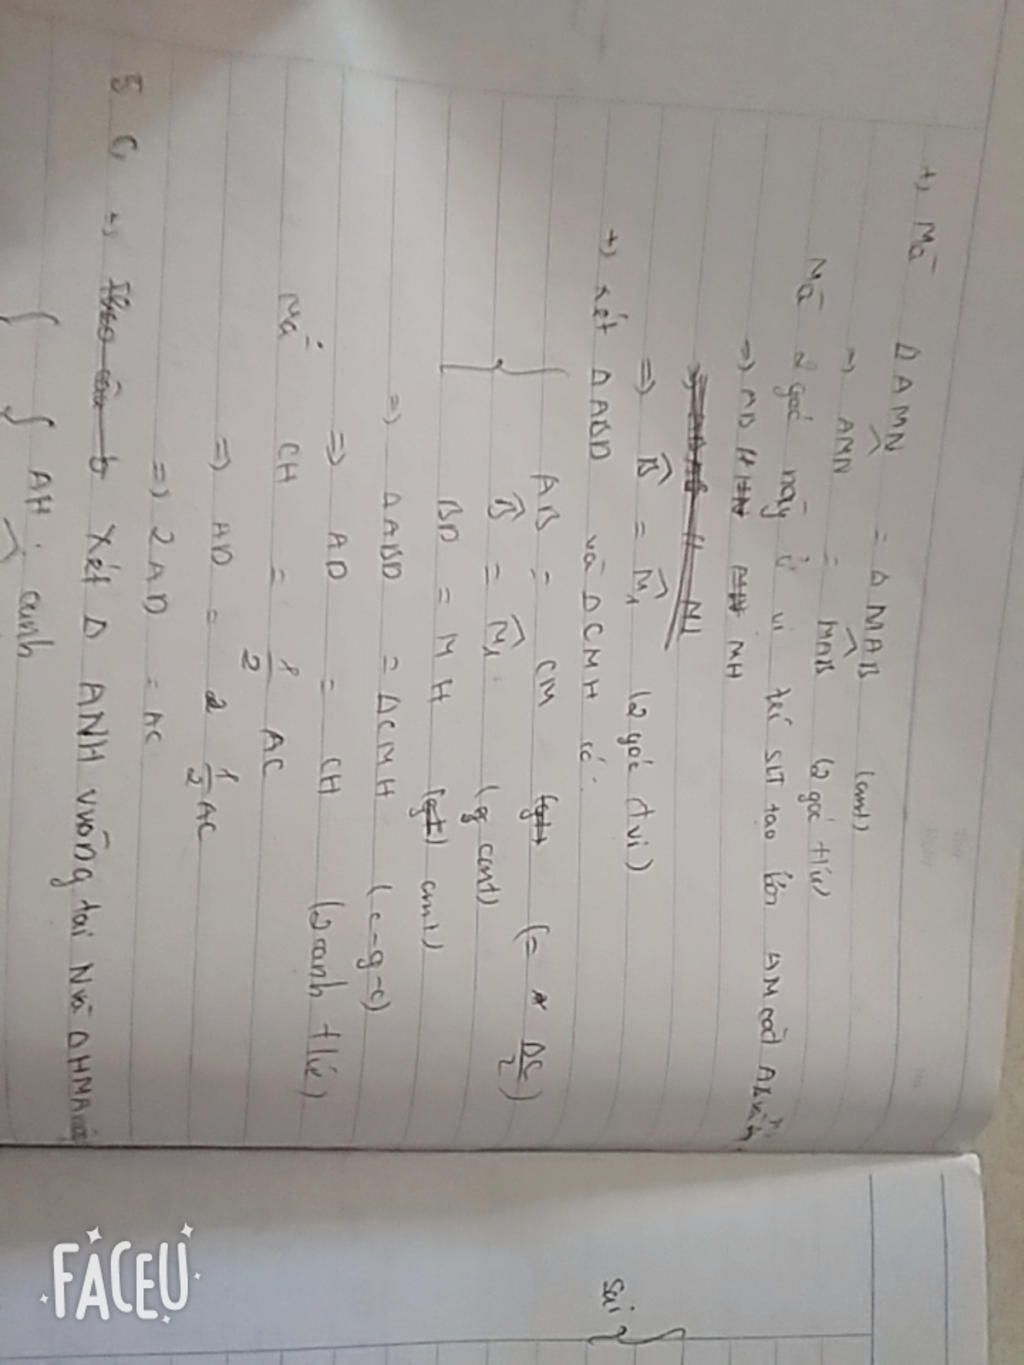 +, Mà ΔAMN = ΔMAB (cmt)
=> AMN = MAB (2 góc t/ứ)
Mà 2 góc này ở vị trí SLT tạo bởi AM cắt
=> MH
=> B̂ = M̂₁ (2 góc đvị)
+) xét ΔABD và ΔCMH có:
AB = CM (= BC/2)
B̂ = M̂₁ (cmt)
BD = MH (cmt)
=> ΔABD = ΔCMH (c-g-c)
=> AD = CH (2 cạnh t/ứ)
Mà CH = 1/2 AC
=> AD = 1/2 AC
=> 2AD = AC
5 C, +) Theo câu b Xét Δ ANH vuông tại N và ΔHMA
AH: cạnh
sai
FACEU